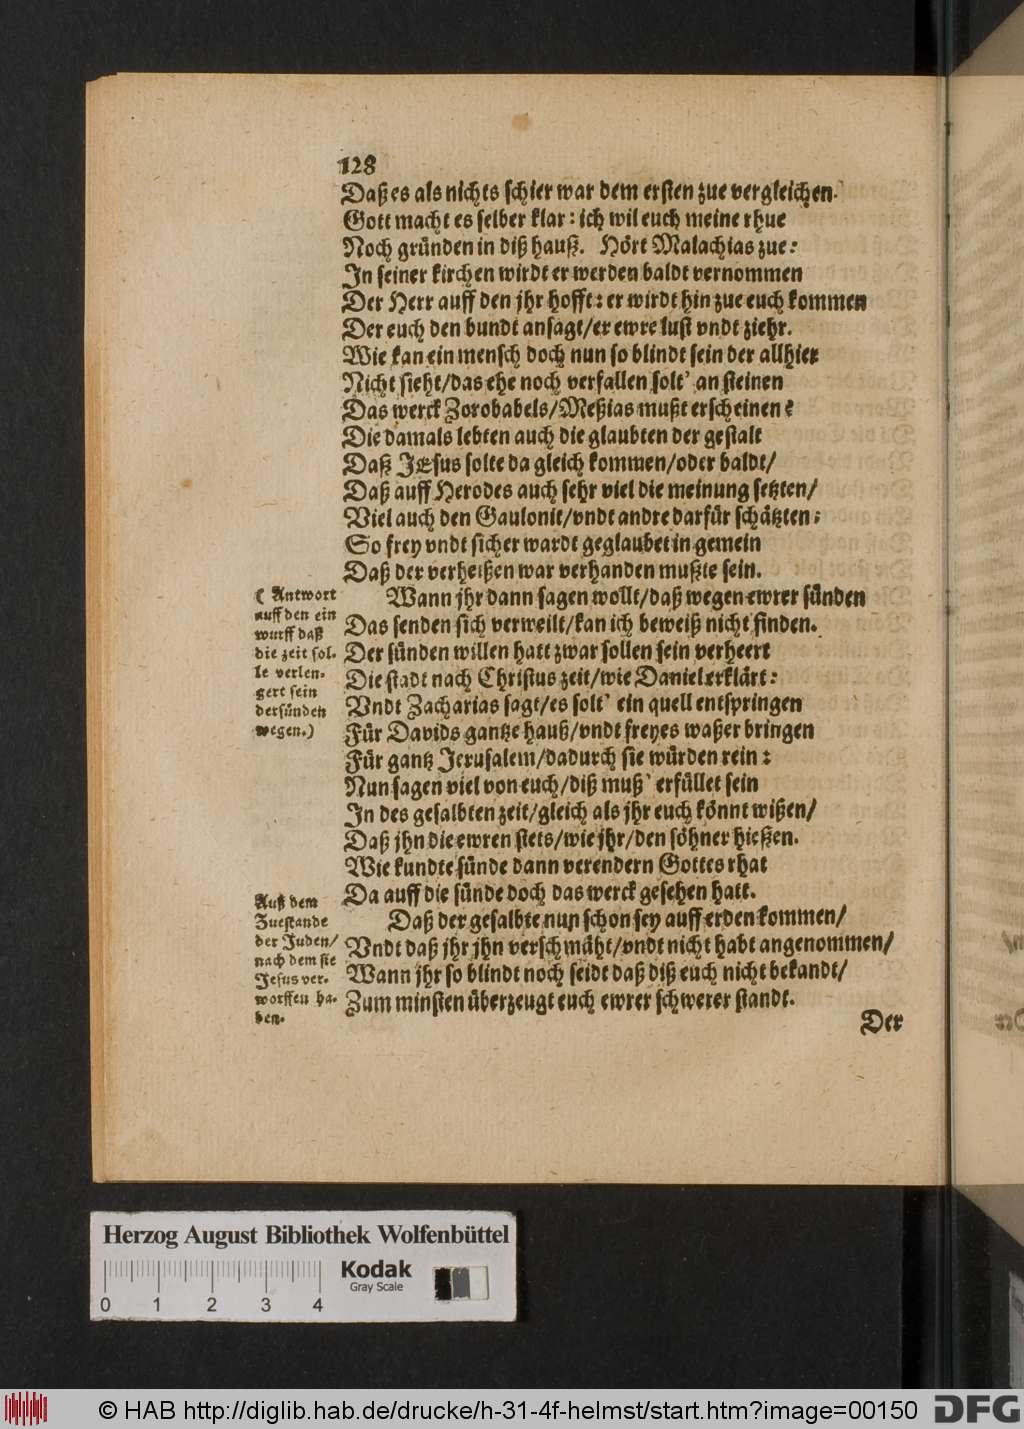 128
Daß es als nichts schier war dem ersten zue vergleichen.
Gott macht es selber klar: ich wil euch meine rhue
Noch gründen in diß hauß. Hört Malachias zue:
In seiner kirchen wirdt er werden baldt vernommen
Der Herr auff den jhr hofft: er wirdt hin zue euch kommen
Der euch den bundt ansagt/er ewre lust vndt ziehr.
Wie kan ein mensch doch nun so blindt sein der allhier
Nicht sieht/das ehe noch verfallen solt' an steinen
Das werck Zorobabels/Meßias mußt erscheinen?
Die damals lebten auch die glaubten der gestalt
Daß JEsus solte da gleich kommen/oder baldt/
Daß auff Herodes auch sehr viel die meinung setzten/
Viel auch den Gaulonit/vndt andre darfür schätzten;
So frey vndt sicher wardt geglaubet in gemein
Daß der verheißen war verhanden mußte sein.
( Antwort
auff den ein
wurff daß
die zeit sol-
le verlen-
gert sein
der sünden
wegen.)
Wann jhr dann sagen wollt/daß wegen ewrer sünden
Das senden sich verweilt/kan ich beweiß nicht finden.
Der sünden willen hatt zwar sollen sein verheert
Die stadt nach Christus zeit/wie Daniel erklärt:
Vndt Zacharias sagt/es solt' ein quell entspringen
Für Davids gantze hauß/vndt freyes waßer bringen
Für gantz Jerusalem/dadurch sie würden rein:
Nun sagen viel von euch/diß muß' erfüllet sein
In des gesalbten zeit/gleich als jhr euch könnt wißen/
Daß jhn die ewren stets/wie jhr/den söhner hießen.
Wie kundte sünde dann verendern Gottes rhat
Da auff die sünde doch das werck gesehen hatt.
Auß dem
Zuestande
der Juden/
nach dem sie
Jesus ver-
worffen ha-
ben.
Daß der gesalbte nun schon sey auff erden kommen/
Vndt daß jhr jhn verschmäht/vndt nicht habt angenommen/
Wann jhr so blindt noch seidt daß diß euch nicht bekandt/
Zum minsten überzeugt euch ewrer schwerer standt.
Der
Herzog August Bibliothek Wolfenbüttel
Kodak
Gray Scale
0 1 2 3 4
© HAB http://diglib.hab.de/drucke/h-31-4f-helmst/start.htm?image=00150
DFG